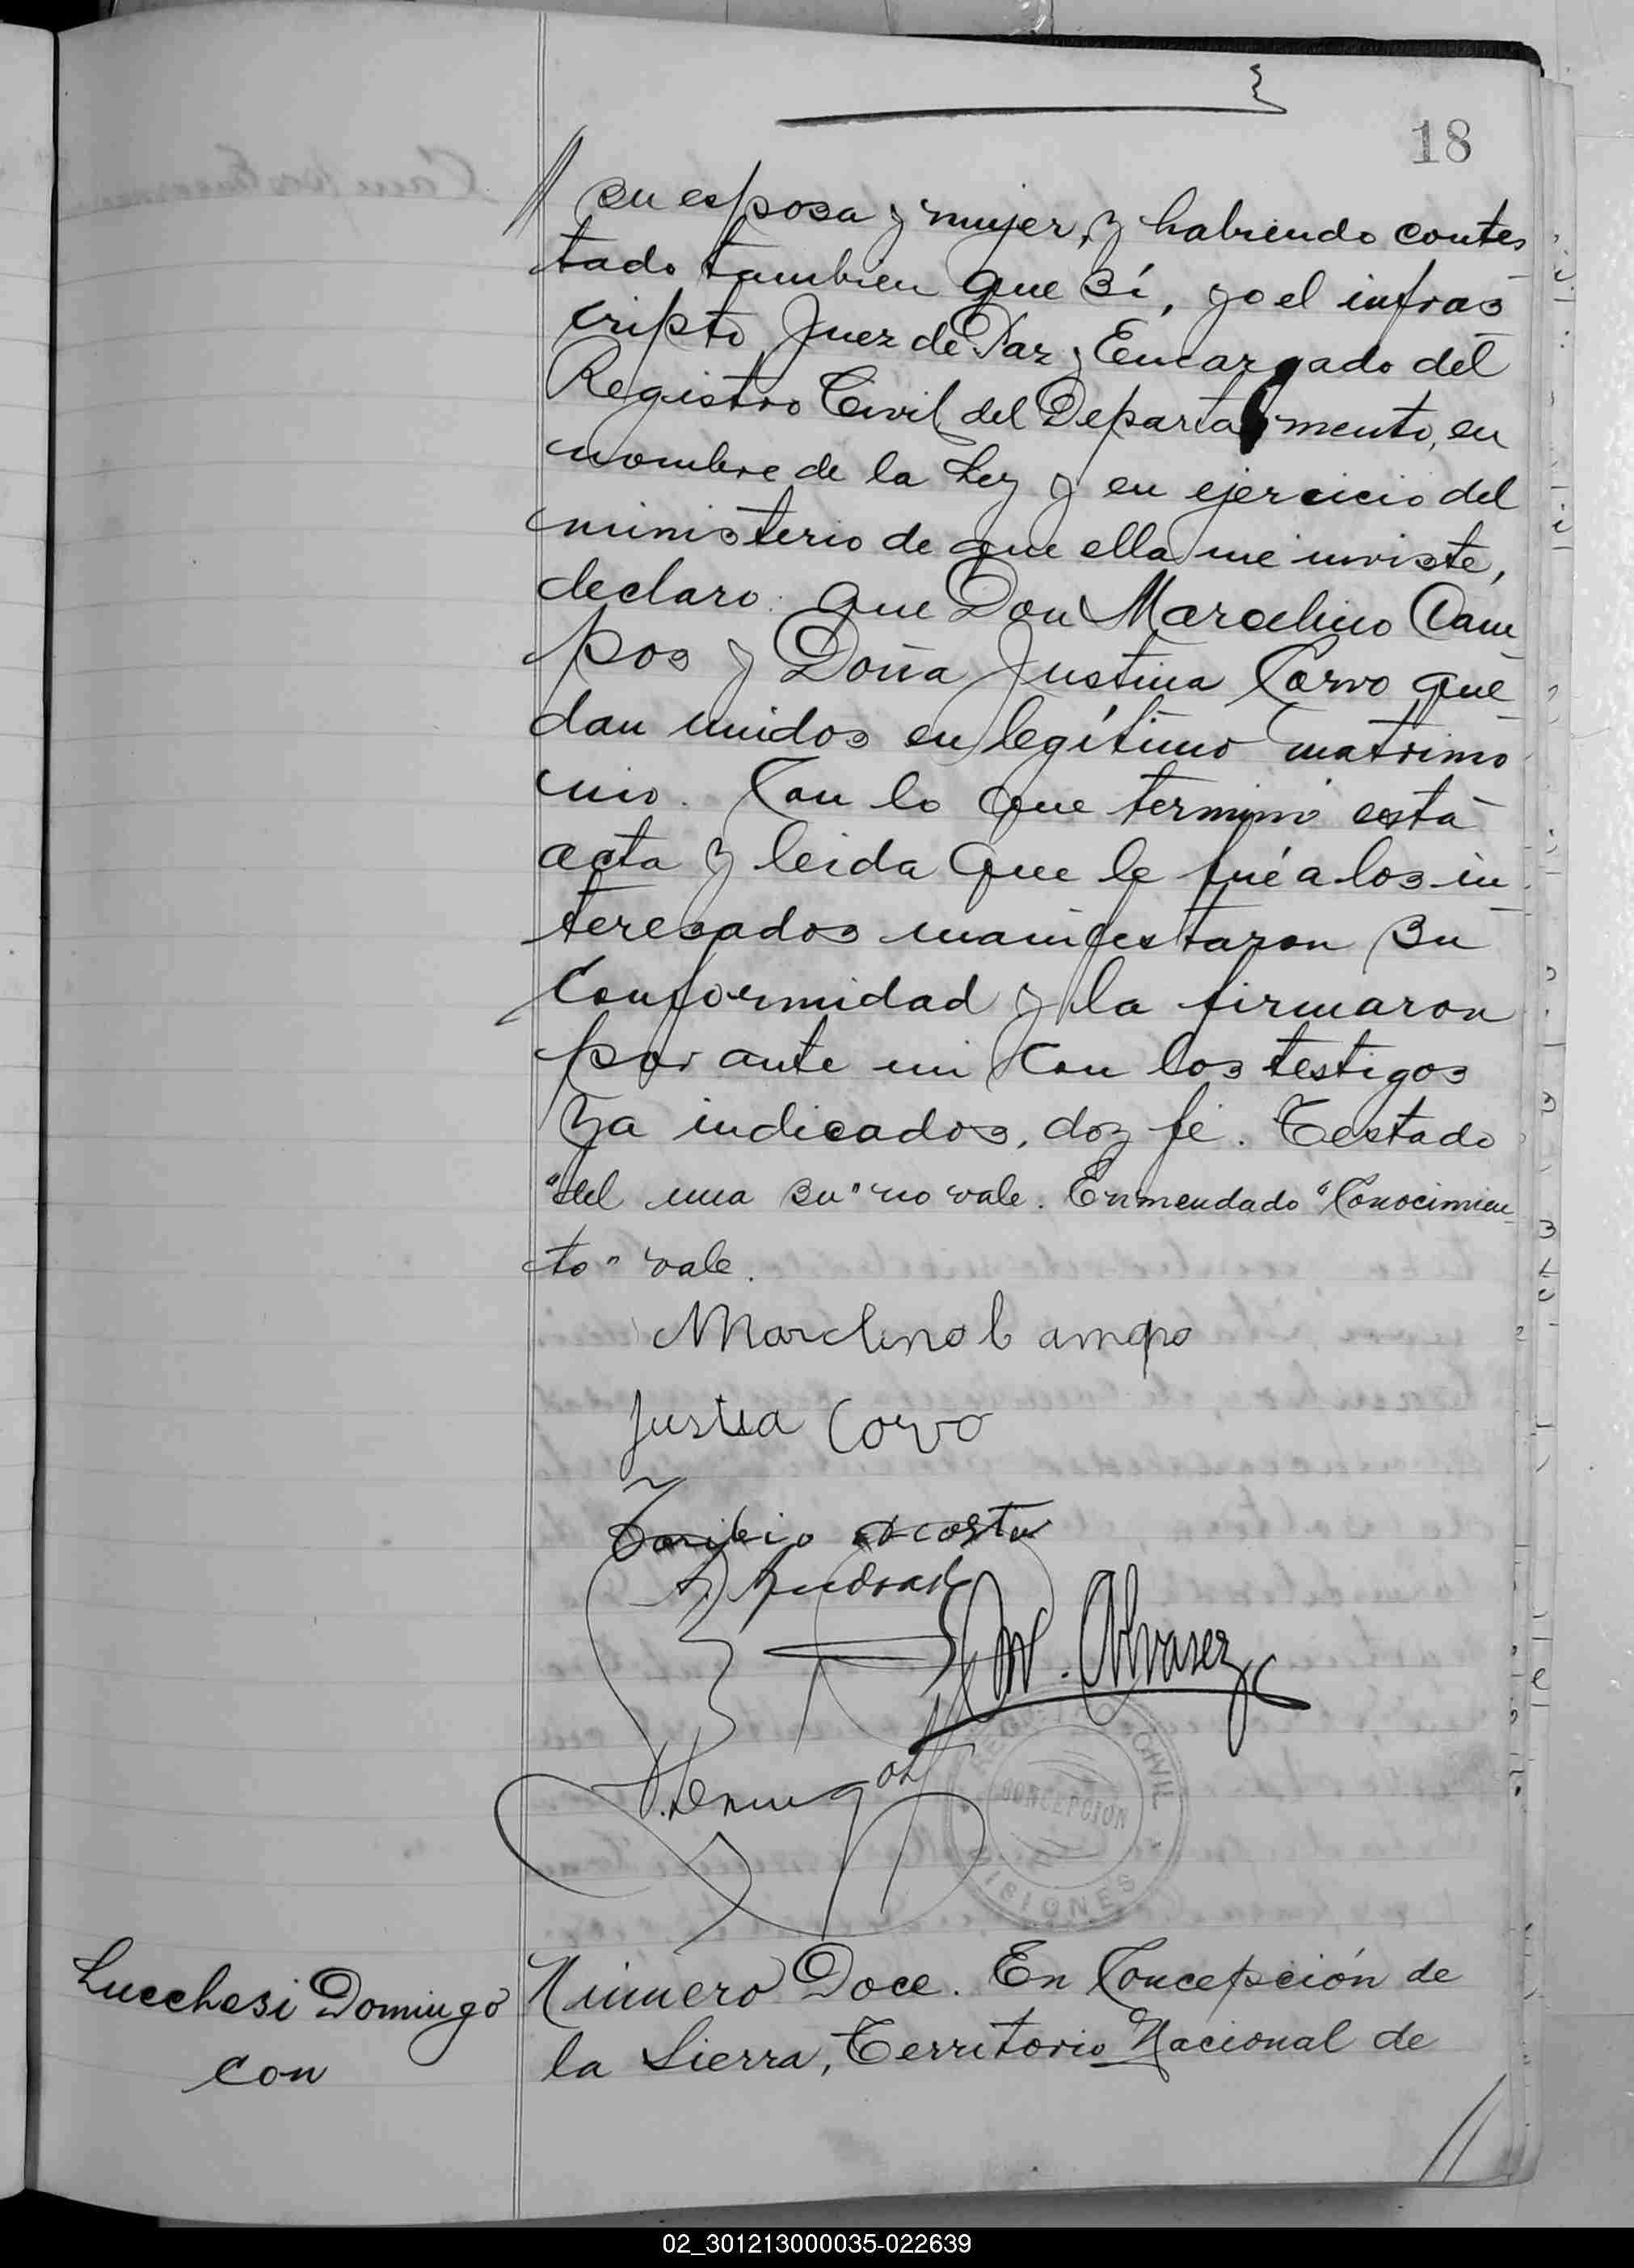 18
// su esposa y mujer, y habiendo contes
tado tambien que sí, yo el infras
cripto Juez de Paz y Encargado del
Registro Civil del Departamento, en
nombre de la Ley y en ejercicio del
ministerio de que ella me inviste,
declaro: que Don Marcelino Cam
pos y Doña Justina Corvo que
dan unidos en legítimo matrimo
nio. Con lo que terminó esta
acta y leida que le fué a los in
teresados manifestaron su
conformidad y la firmaron
por ante mi con los testigos
ya indicados, doy fé. Testado
"del una su" no vale. Enmendado "Conocimien
to" vale.
Marclino Campo
Justia Corvo
Toribio Acosta
M. Alvarez
REGISTRO CIVIL
CONCEPCION
MISIONES
Lucchesi Domingo
con
Número Doce. En Concepción de
la Sierra, Territorio Nacional de
//
02_301213000035-022639